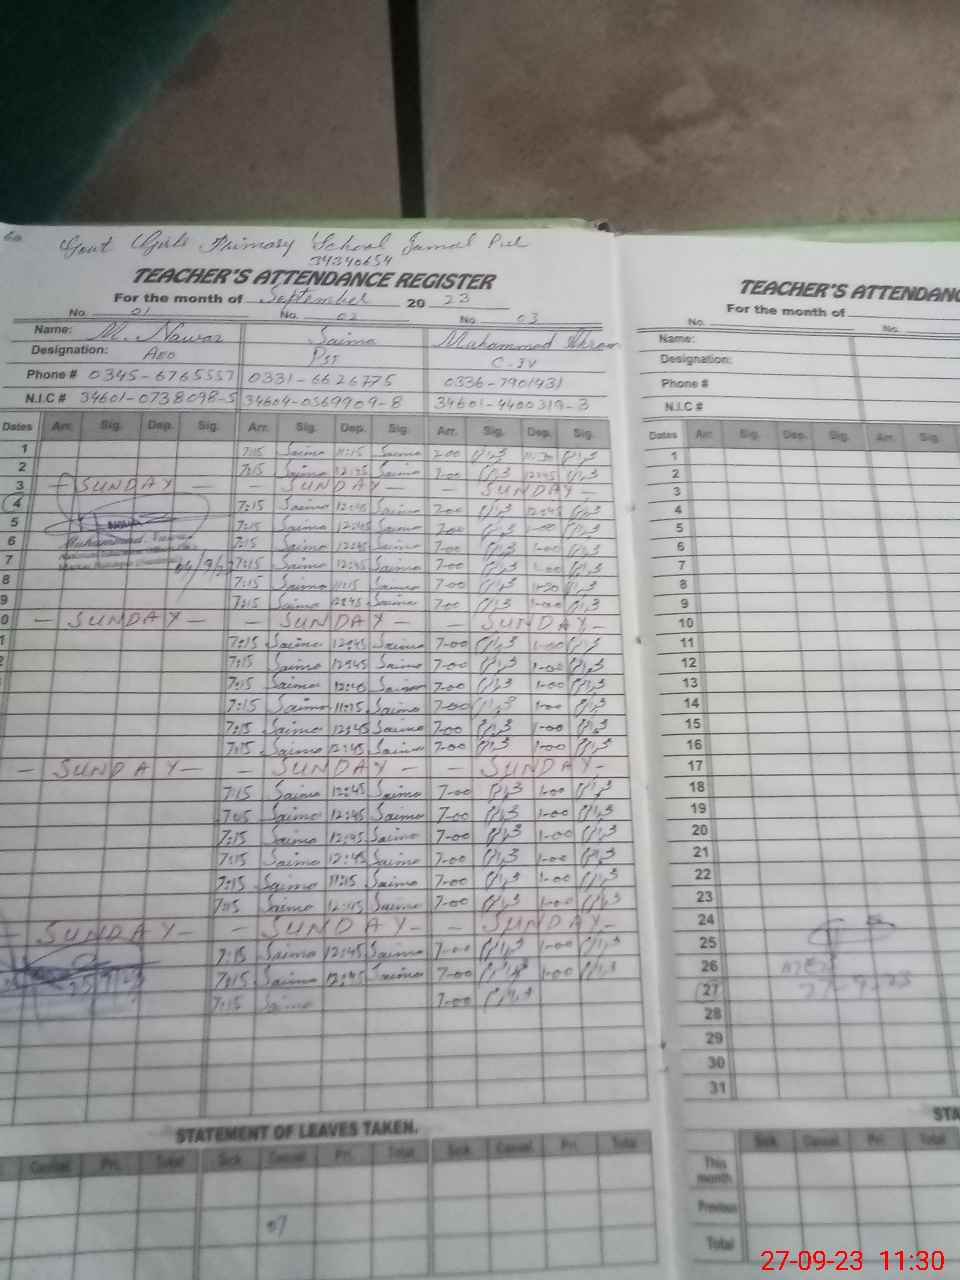 Govt Girls Primary School Jamal Pur
34340654
TEACHER'S ATTENDANCE REGISTER
For the month of September 20 23
No. 01 No. 02 No. 03
Name: M. Nawaz Saima Muhammad Akram
Designation: AEO PST C-IV
Phone # 0345-6765557 0331-6626775 0336-7901431
N.I.C # 34601-0738098-5 34604-0569909-8 34601-4400319-3
Dates Arr. Sig. Dep. Sig. Arr. Sig. Dep. Sig. Arr. Sig. Dep. Sig.
1 7:15 Saima 11:15 Saima 11:30
2 7:15 Saima 12:45 Saima 7-00 12:45
3 - SUNDAY - - SUNDAY - - SUNDAY -
4 7:15 Saima 12:45 Saima 7-00 12:45
5 Nawaz 7:15 Saima 12:45 Saima 7-00 1-00
6 Muhammad Nawaz 7:15 Saima 12:45 Saima 7-00 1-00
7 04/9/23 7:15 Saima 12:45 Saima 7-00 1-00
8 7:15 Saima 11:15 Saima 7-00
9 7:15 Saima 12:45 Saima 7-00 1-00
0 - SUNDAY - - SUNDAY - - SUNDAY -
1 7:15 Saima 12:45 Saima 7-00 1-00
2 7:15 Saima 12:45 Saima 7-00 1-00
7:15 Saima Saima 7-00 1-00
7:15 Saima 11:15 Saima 7-00 1-00
7:15 Saima 12:45 Saima 7-00 1-00
7:15 Saima 12:45 Saima 7-00 1-00
- SUNDAY - - SUNDAY - - SUNDAY -
7:15 Saima 12:45 Saima 7-00 1-00
7:15 Saima 12:45 Saima 7-00 1-00
7:15 Saima 12:45 Saima 7-00 1-00
7:15 Saima 12:45 Saima 7-00 1-00
7:15 Saima 11:15 Saima 7-00 1-00
7:15 Saima 12:45 Saima 7-00 1-00
- SUNDAY - - SUNDAY - - SUNDAY -
7:15 Saima 12:45 Saima 7-00 1-00
25/9/23 7:15 Saima 12:45 Saima 7-00 1-00
7:15 Saima 7-00
STATEMENT OF LEAVES TAKEN.
Casual Pri. Total Sick Casual Pri. Total Sick Casual Pri. Total
07
TEACHER'S ATTENDANC
For the month of
No. No.
Name:
Designation:
Phone #
N.I.C #
Dates Arr. Sig. Dep. Sig. Arr. Sig.
1
2
3
4
5
6
7
8
9
10
11
12
13
14
15
16
17
18
19
20
21
22
23
24
25
26
27 27-9-23
28
29
30
31
STA
Sick Casual Pri. Total
This month
Previous
Total
27-09-23 11:30